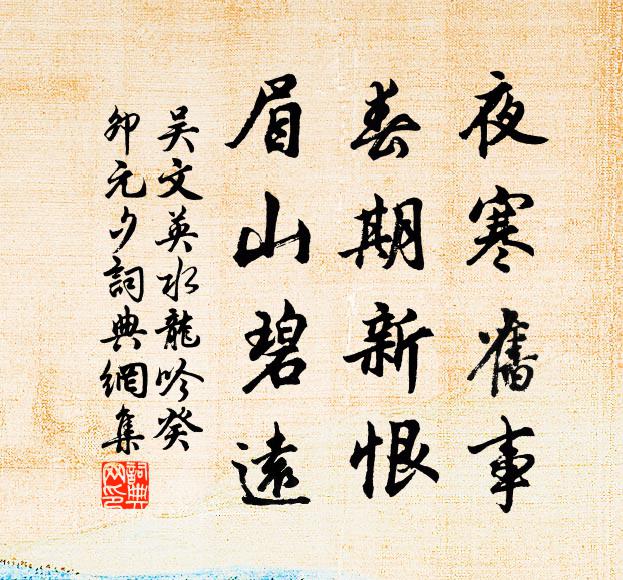 夜寒舊事
春期新恨
眉山碧遠
吳文英水龍吟癸
卯元夕詞典網集
詞典
网印